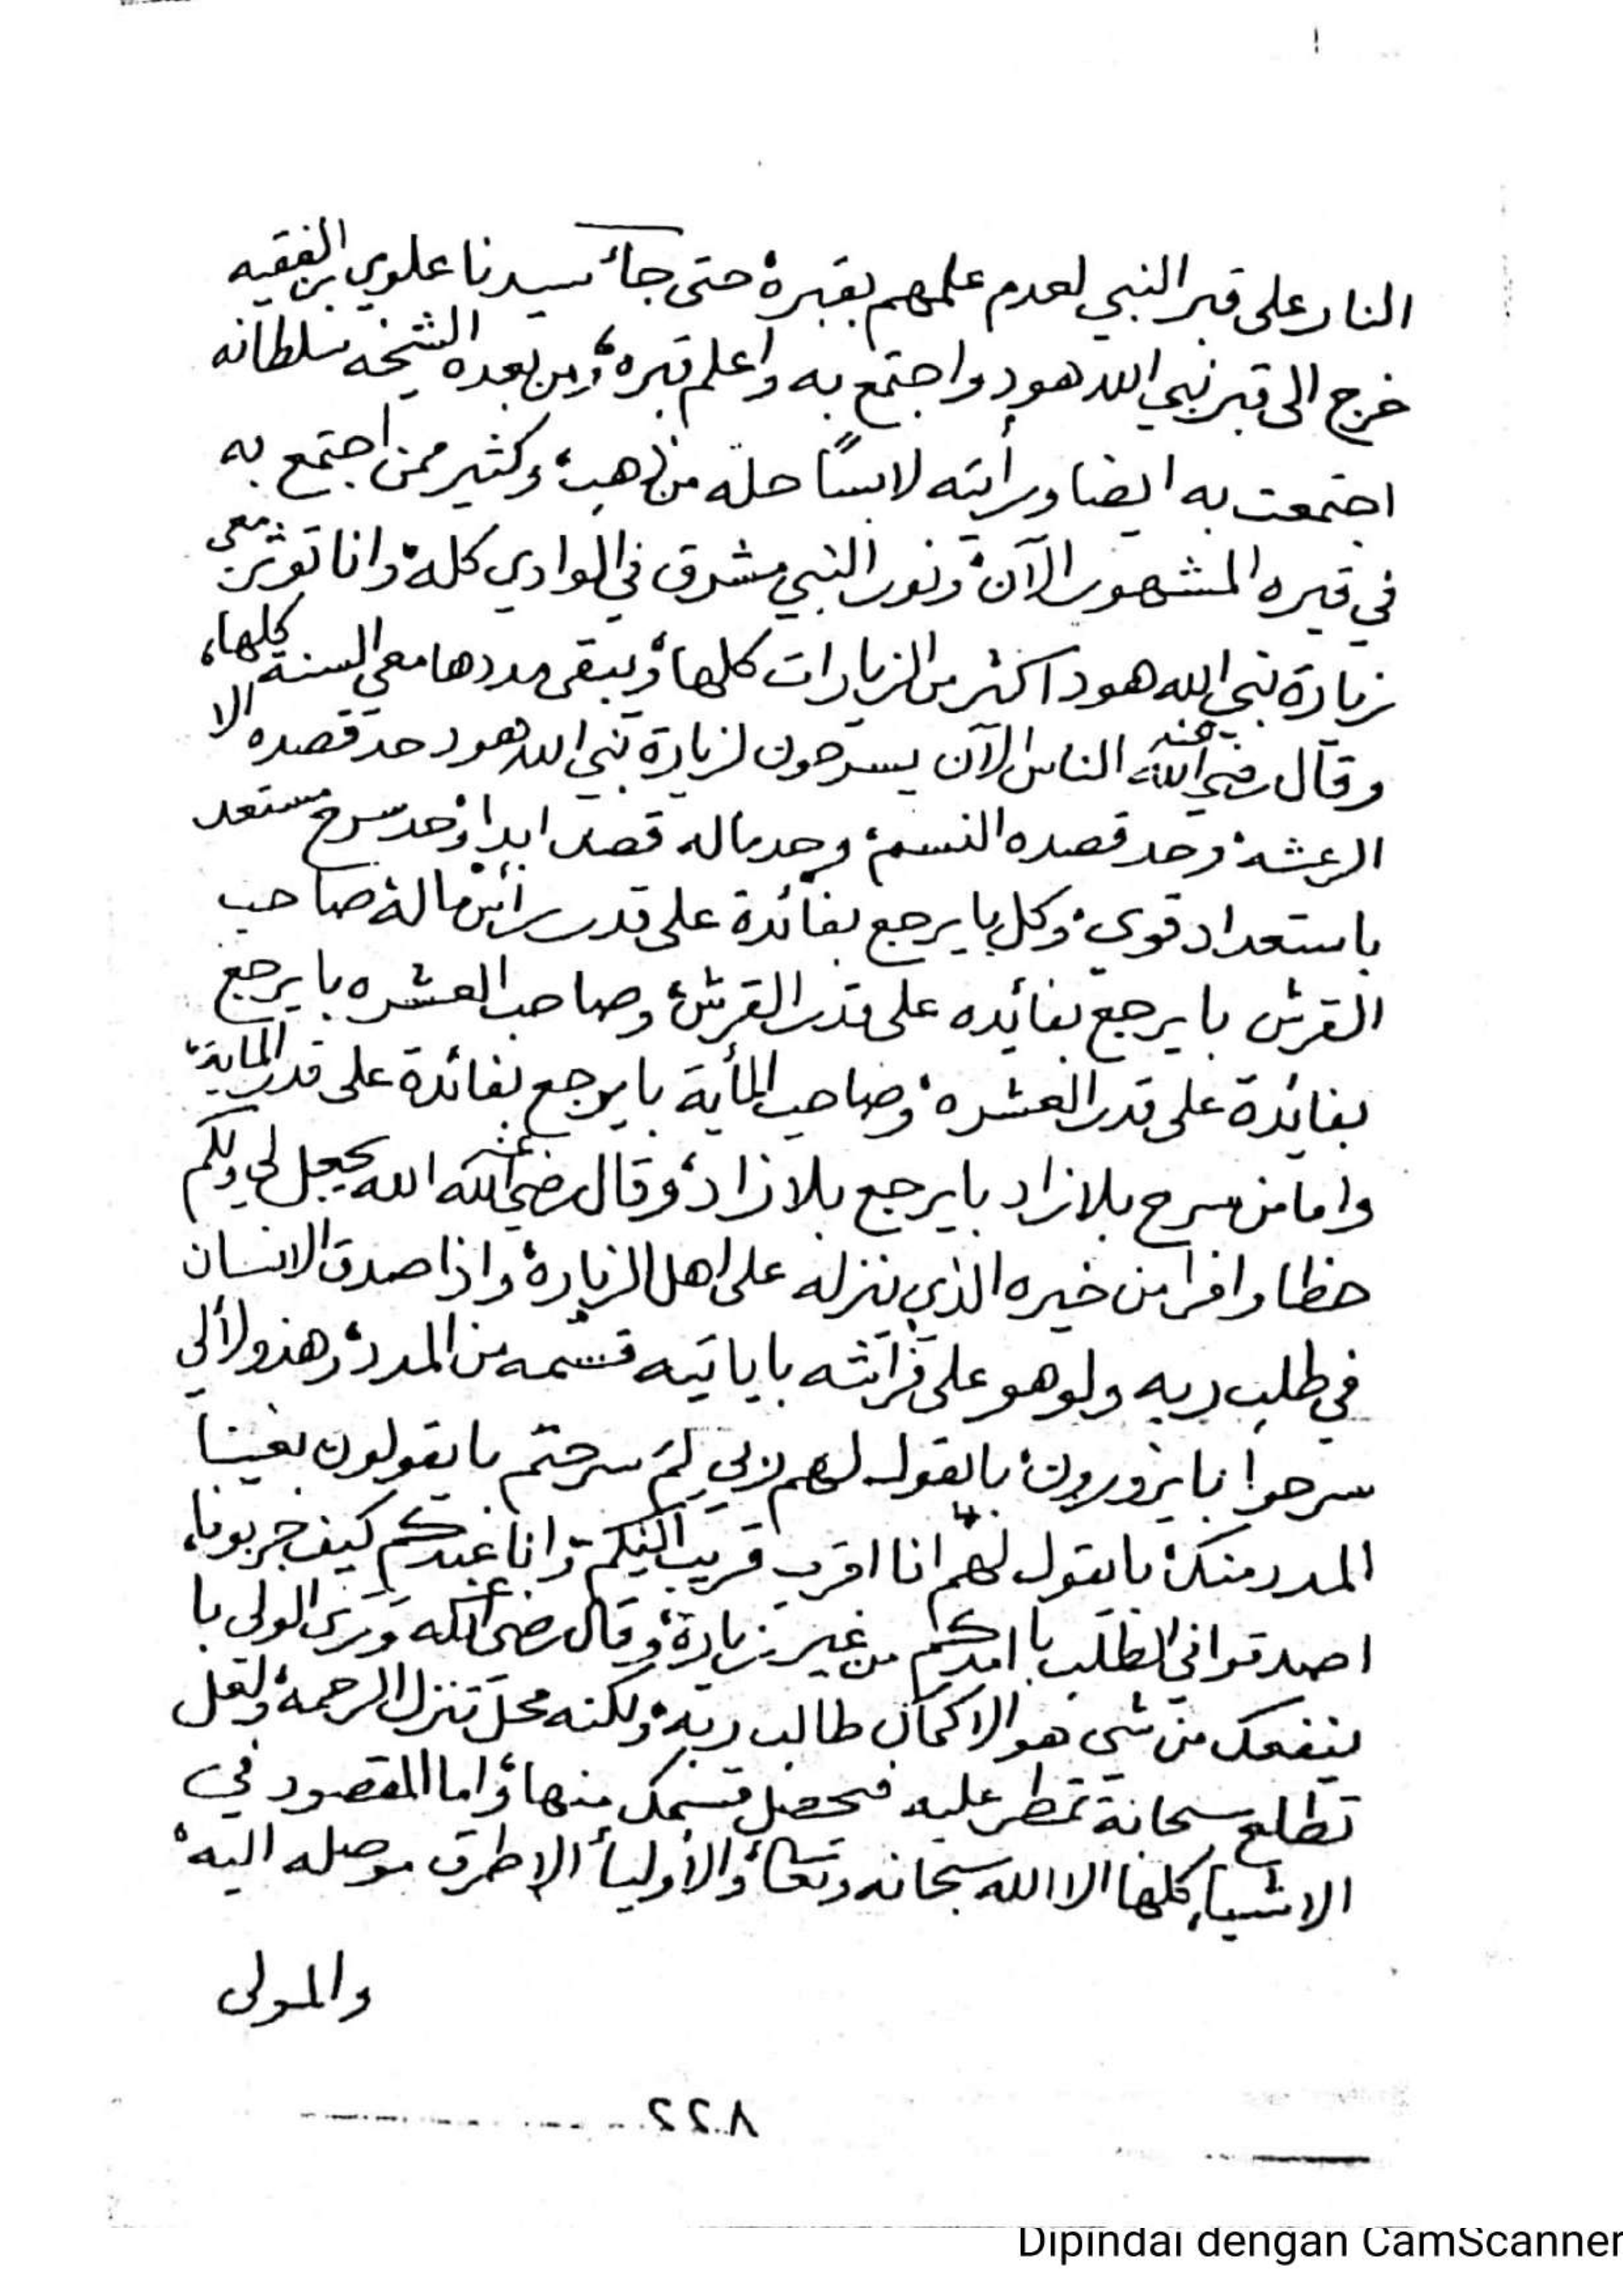 النار على قبر النبي لعدم علمهم بقبره، حتى جاء سيدنا علوي بن الفقيه
خرج الى قبر نبي الله هود واجتمع به واعلم قبره، ومن بعده الشيخه سلطانه
اجتمعت به ايضا ورأيته لابسًا حلة من ذهب، وكثير ممن اجتمع به
في قبره المشهور الآن، ونور النبي مشرق في الوادي كله، وانا تؤثر معي
زيارة نبي الله هود اكثر من الزيارات كلها، ويبقى مددها معي السنة كلها،
وقال رضي الله عنه الناس الآن يسرحون لزيارة نبي الله هود حد قصده الا
الرعشه، وحد قصده النسم، وحد ماله قصد ابدا، وحد سرح مستعد
باستعداد قوي، وكل با يرجع بفائدة على قدر رأس ماله، صاحب
القرش با يرجع بفائده على قدر القرش، وصاحب العشره با يرجع
بفائدة على قدر العشره، وصاحب المأية با يرجع بفائدة على قدر الماية،
واما من سرح بلا زاد با يرجع بلا زاد، وقال رضي الله عنه الله يجعل لي ولكم
حظا وافرا من خيره الذي نزله على اهل الزيارة، واذا صدق الانسان
في طلب ربه ولو هو على فراشه با ياتيه قسمه من المدد، وهذولا لي
سرحوا با يزورون، با يقول لهم ربي لِمَ سرحتم با يقولون بغينا
المدد منك، با يقول لهم انا اقرب قريب اليكم وانا عندكم كيف خربونا،
اصدقوا في الطلب با امدكم من غير زيارة، وقال رضي الله عنه وترى الولي با
ينفعك من شي هو الا كمان طالب ربه، ولكنه محل تنزل الرحمة، ولعل
تطلع سحابة تمطر عليه فحصل قسمك منها، واما المقصود في
الاشياء كلها الا الله سبحانه وتعالى، والاولياء الا طرق موصله اليه،
والمولى
٨٢٢
Dipindai dengan CamScanner